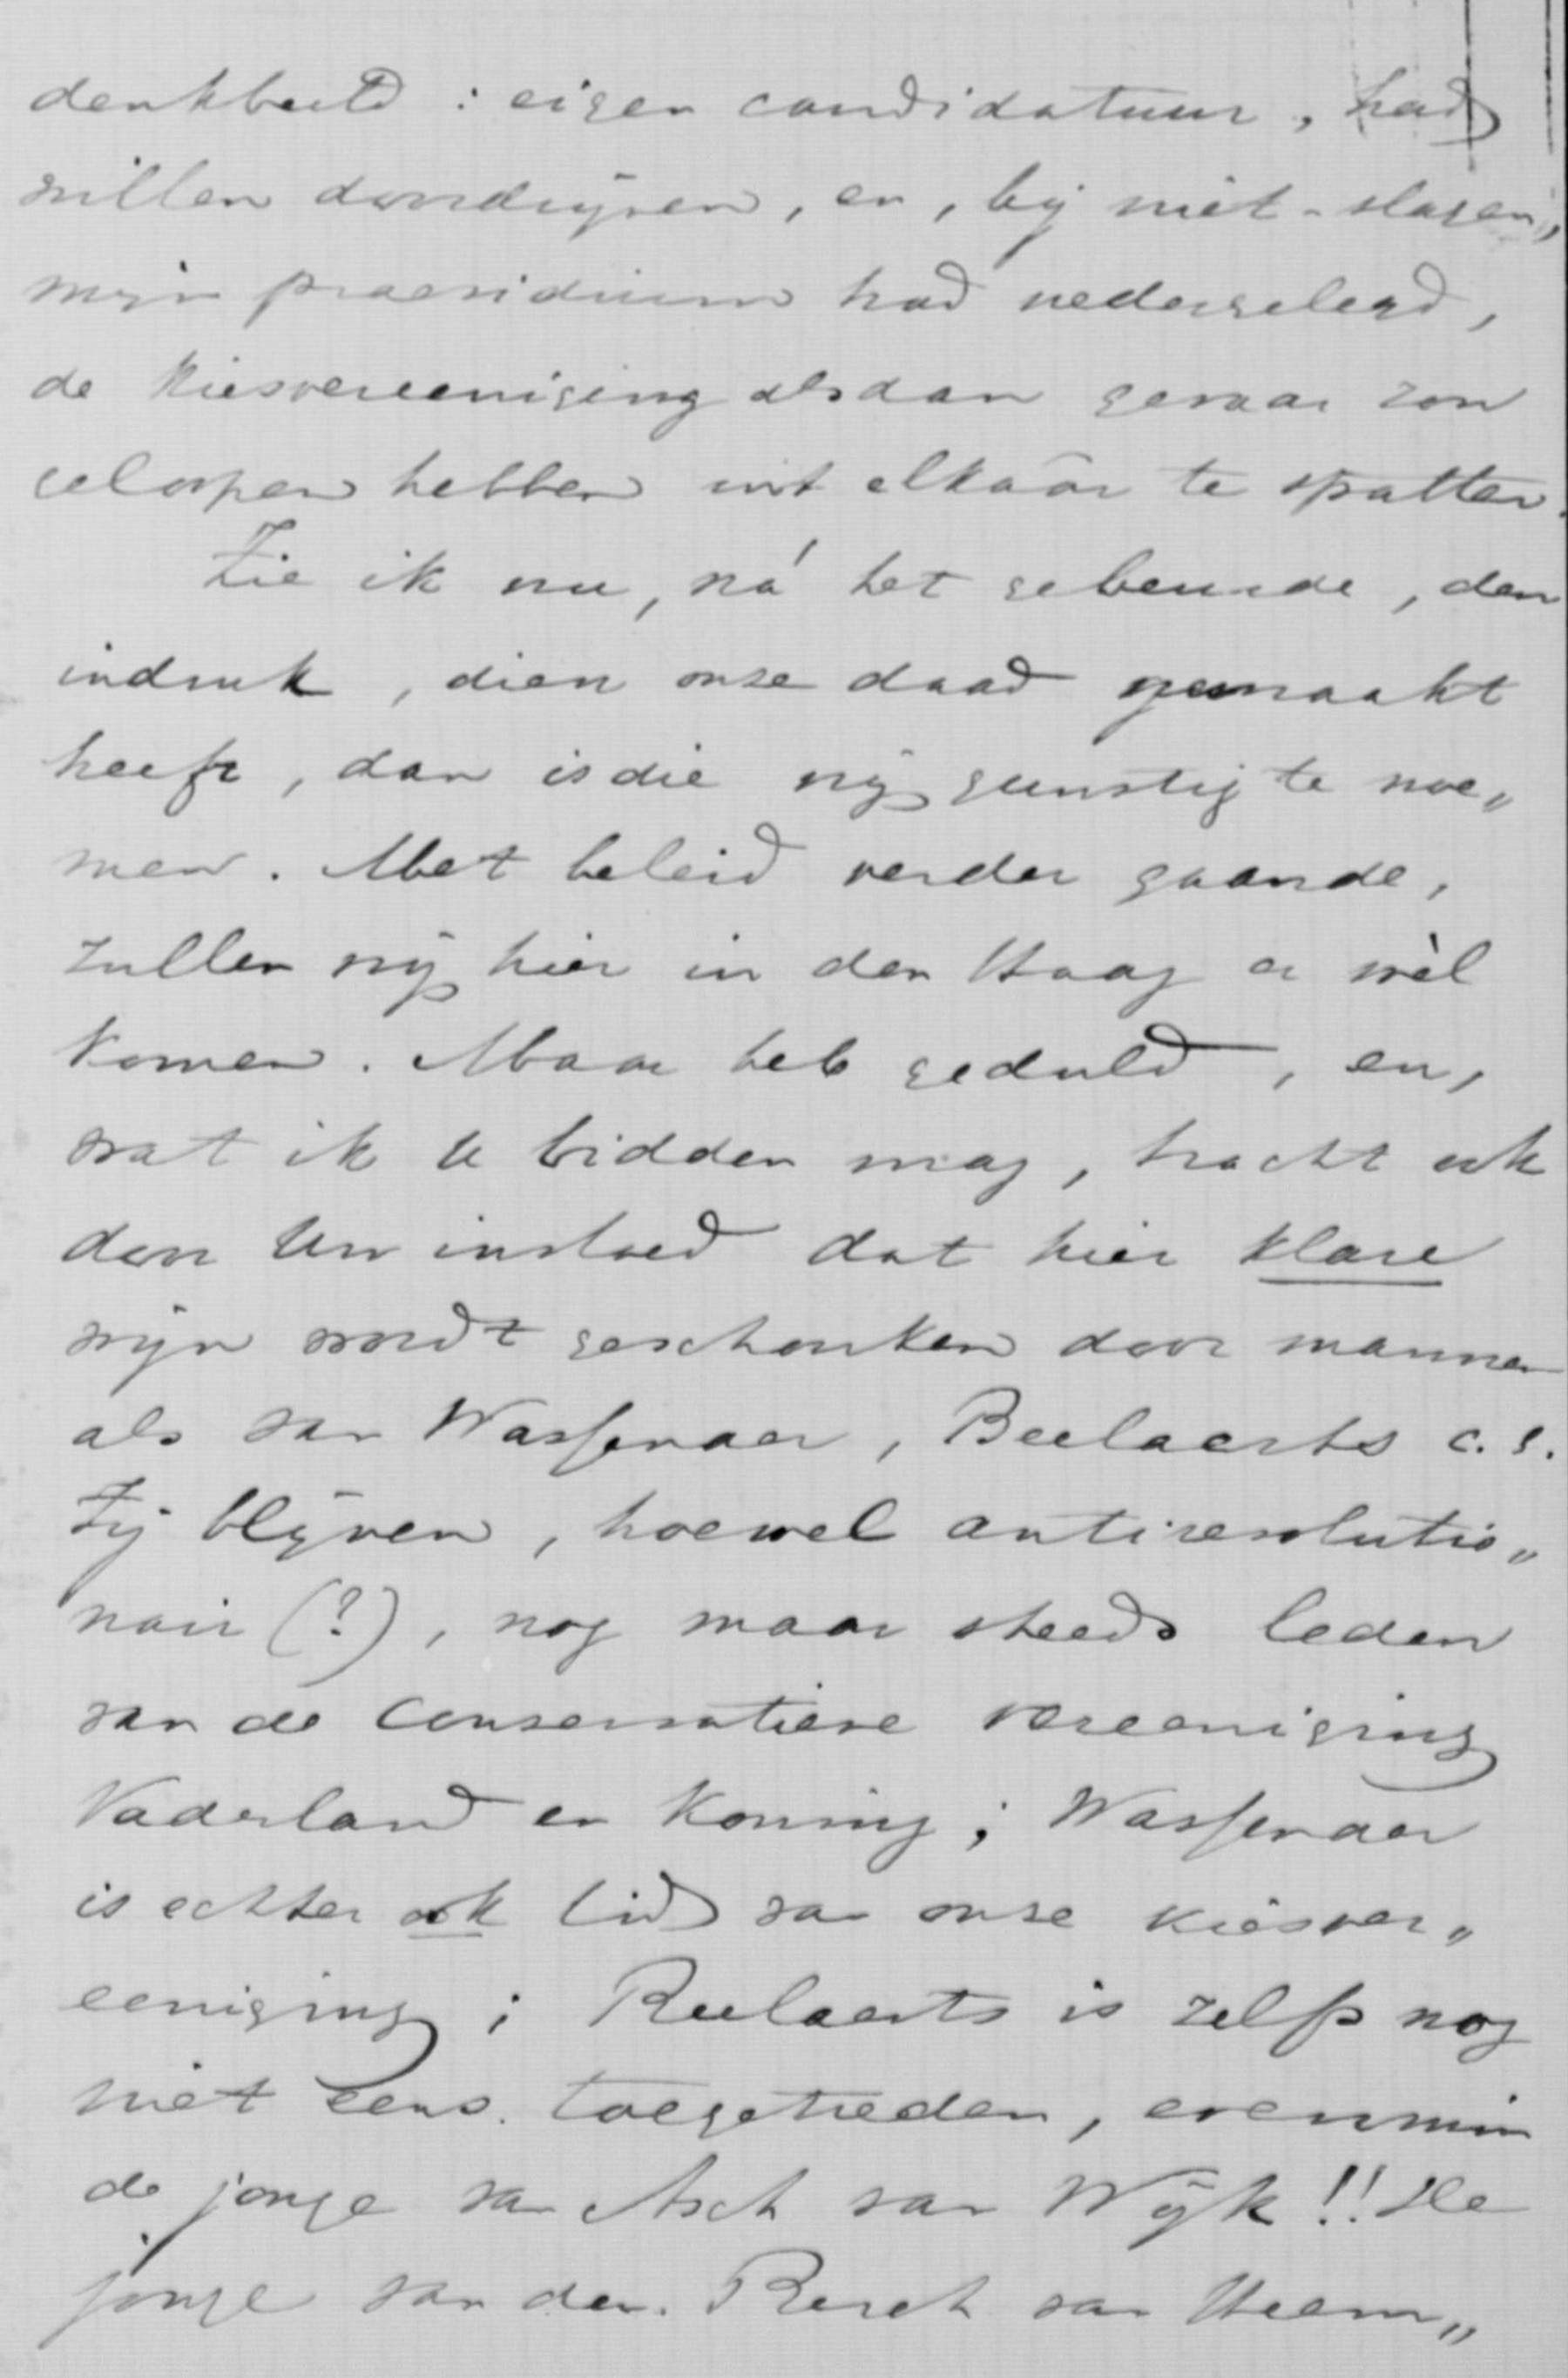 denkbeeld : eigen candidatuur, had
willen doordrijven, en, bij niet-slagen,
mijn praesidium had nedergelegd,
de kiesvereeniging alsdan gevaar zou
geloopen hebben uit elkaâr te spatten.
Zie ik nu, ná het gebeurde, den
indruk, dien onze daad gemaakt
heeft, dan is die vrij gunstig te noe„
men. Met beleid verder gaande,
zullen wij hier in den Haag er wèl
komen. Maar heb geduld, en,
wat ik U bidden mag, tracht ook
door Uw invloed dat hier klare
wijn wordt geschonken door mannen
als van Wassenaer, Beelaerts c.s.
Zij blijven, hoewel antirevolutio„
nair (?), nog maar steeds leden
van de Conservatieve vereeniging
Vaderland en Koning; Wassenaer
is echter ook lid van onze kiesver„
eeniging; Beelaerts is zelfs nog
niet eens toegetreden, evenmin
de jonge van Asch van Wijk!! De
jonge van den Berch van Heem„